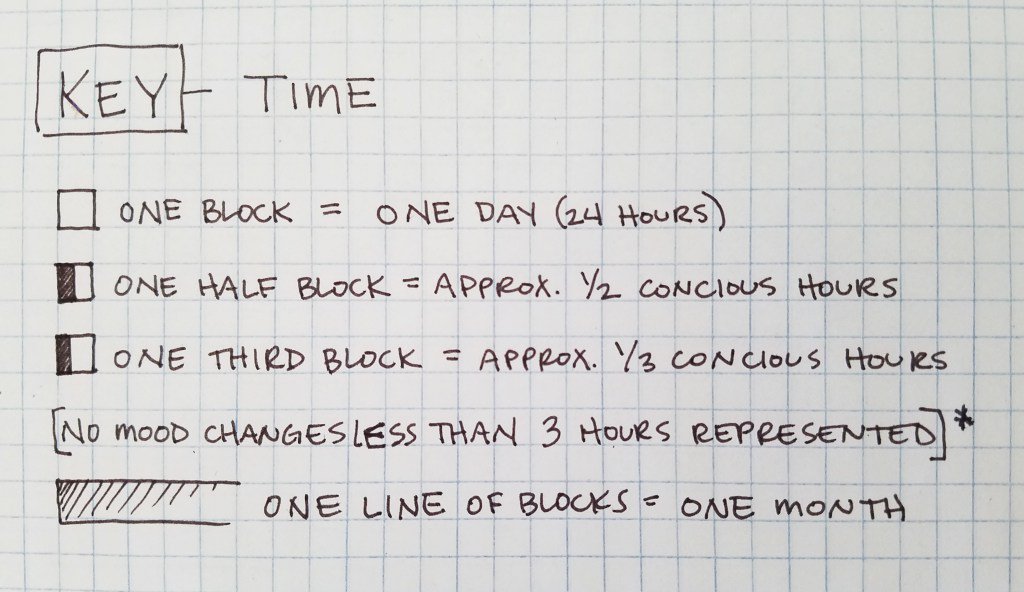 KEY - TIME
ONE BLOCK = ONE DAY (24 HOURS)
ONE HALF BLOCK = APPROX. 1/2 CONCIOUS HOURS
ONE THIRD BLOCK = APPROX. 1/3 CONCIOUS HOURS
[NO MOOD CHANGES LESS THAN 3 HOURS REPRESENTED]*
ONE LINE OF BLOCKS = ONE MONTH